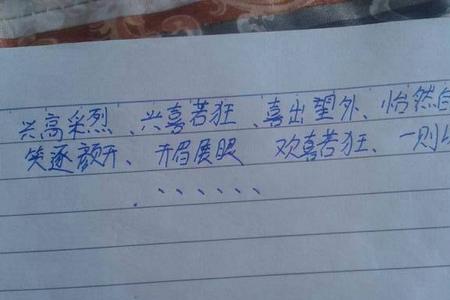 兴高采烈、兴喜若狂、喜出望外、怡然自
笑逐颜开、开眉展眼 欢喜若狂、一则以
、、、、、、